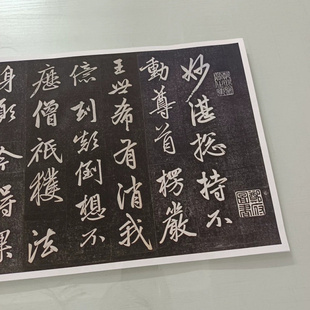 妙湛揔持不
動尊首楞嚴
王世希有消我
億劫顛倒想不
歷僧祇獲法
身願今得果